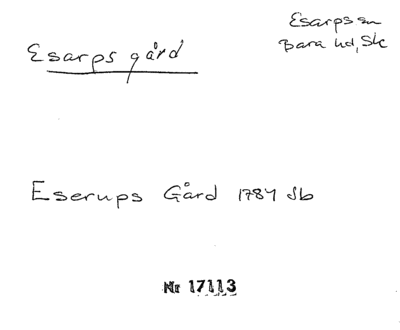 Esarps gård
Esarps sn
Bara hd, Sk
Eserups Gård 1784 Jb
Nr 17113